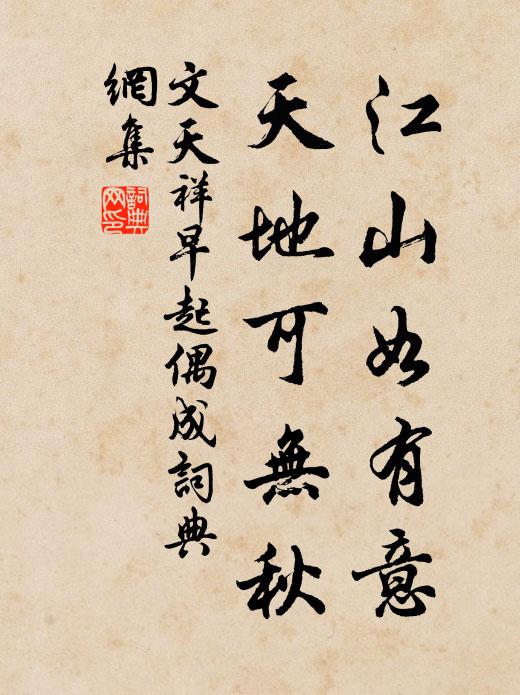 江山如有意
天地可無秋
文天祥早起偶成詞典
網集
詞典
网印